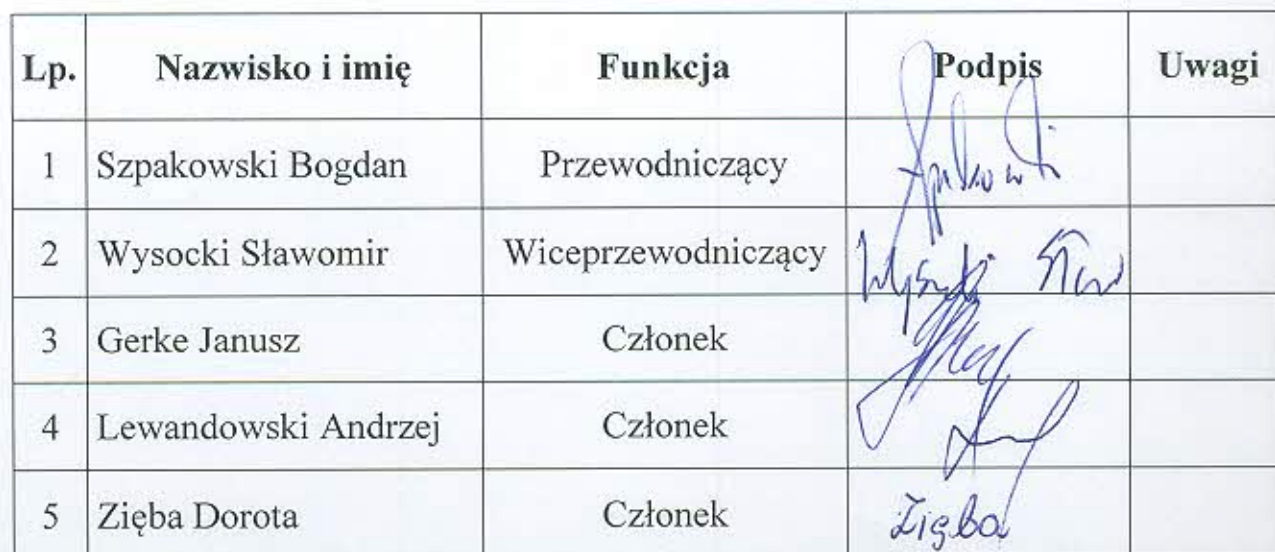 Lp. Nazwisko i imię Funkcja Podpis Uwagi
1 Szpakowski Bogdan Przewodniczący
2 Wysocki Sławomir Wiceprzewodniczący
3 Gerke Janusz Członek
4 Lewandowski Andrzej Członek
5 Zięba Dorota Członek Zięba